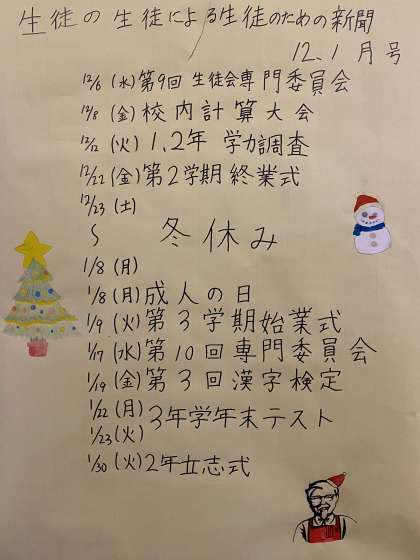 生徒の生徒による生徒のための新聞
12.1月号
12/6(水)第9回 生徒会専門委員会
12/8(金)校内計算大会
12/12(火)1,2年 学力調査
12/22(金)第2学期終業式
12/23(土)
~ 冬休み
1/8(月)
1/8(月)成人の日
1/9(火)第3学期始業式
1/17(水)第10回専門委員会
1/19(金)第3回漢字検定
1/22(月)3年学年末テスト
1/23(火)
1/30(火)2年立志式